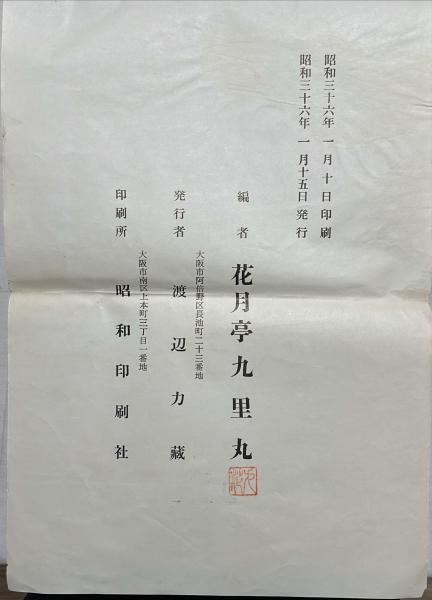 昭和三十六年 一月 十 日 印 刷
昭和三十六年 一月十五日 発 行
編 者 花月亭九里丸
大阪市阿倍野区長池町二十三番地
発行者 渡辺力藏
大阪市南区上本町三丁目一番地
印刷所 昭和印刷社